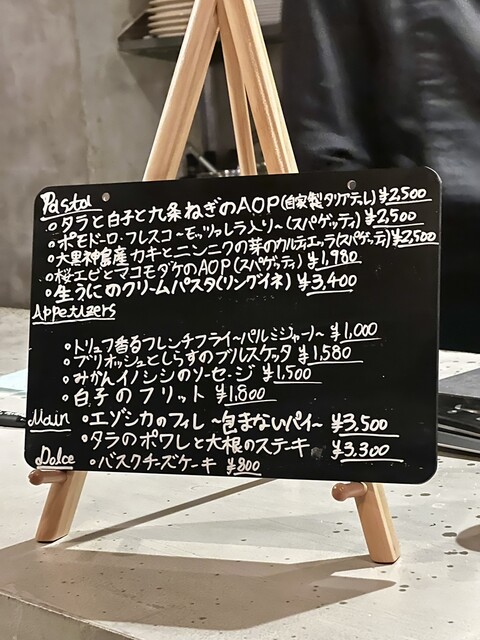 Pasta
○タラと白子と九条ねぎのAOP(自家製タリアテッレ) ¥2,500
○ポモドーロ・フレスコ～モッツァレラ入り～(スパゲッティ) ¥2,500
○大黒神島産カキとニンニクの芽の(スパゲッティ) ¥2,500
○桜エビとマコモダケのAOP(スパゲッティ) ¥1,980
○生うにのクリームパスタ(リングイネ) ¥3,400
Appetizers
○トリュフ香るフレンチフライ～パルミジャーノ～ ¥1,000
○ブリオッシュとしらすのブルスケッタ ¥1,580
○みかんイノシシのソーセージ ¥1,500
○白子のフリット ¥1,800
Main ○エゾシカのフィレ ～包まないパイ～ ¥3,500
○タラのポワレと大根のステーキ ¥3,300
Dolce ○バスクチーズケーキ ¥800